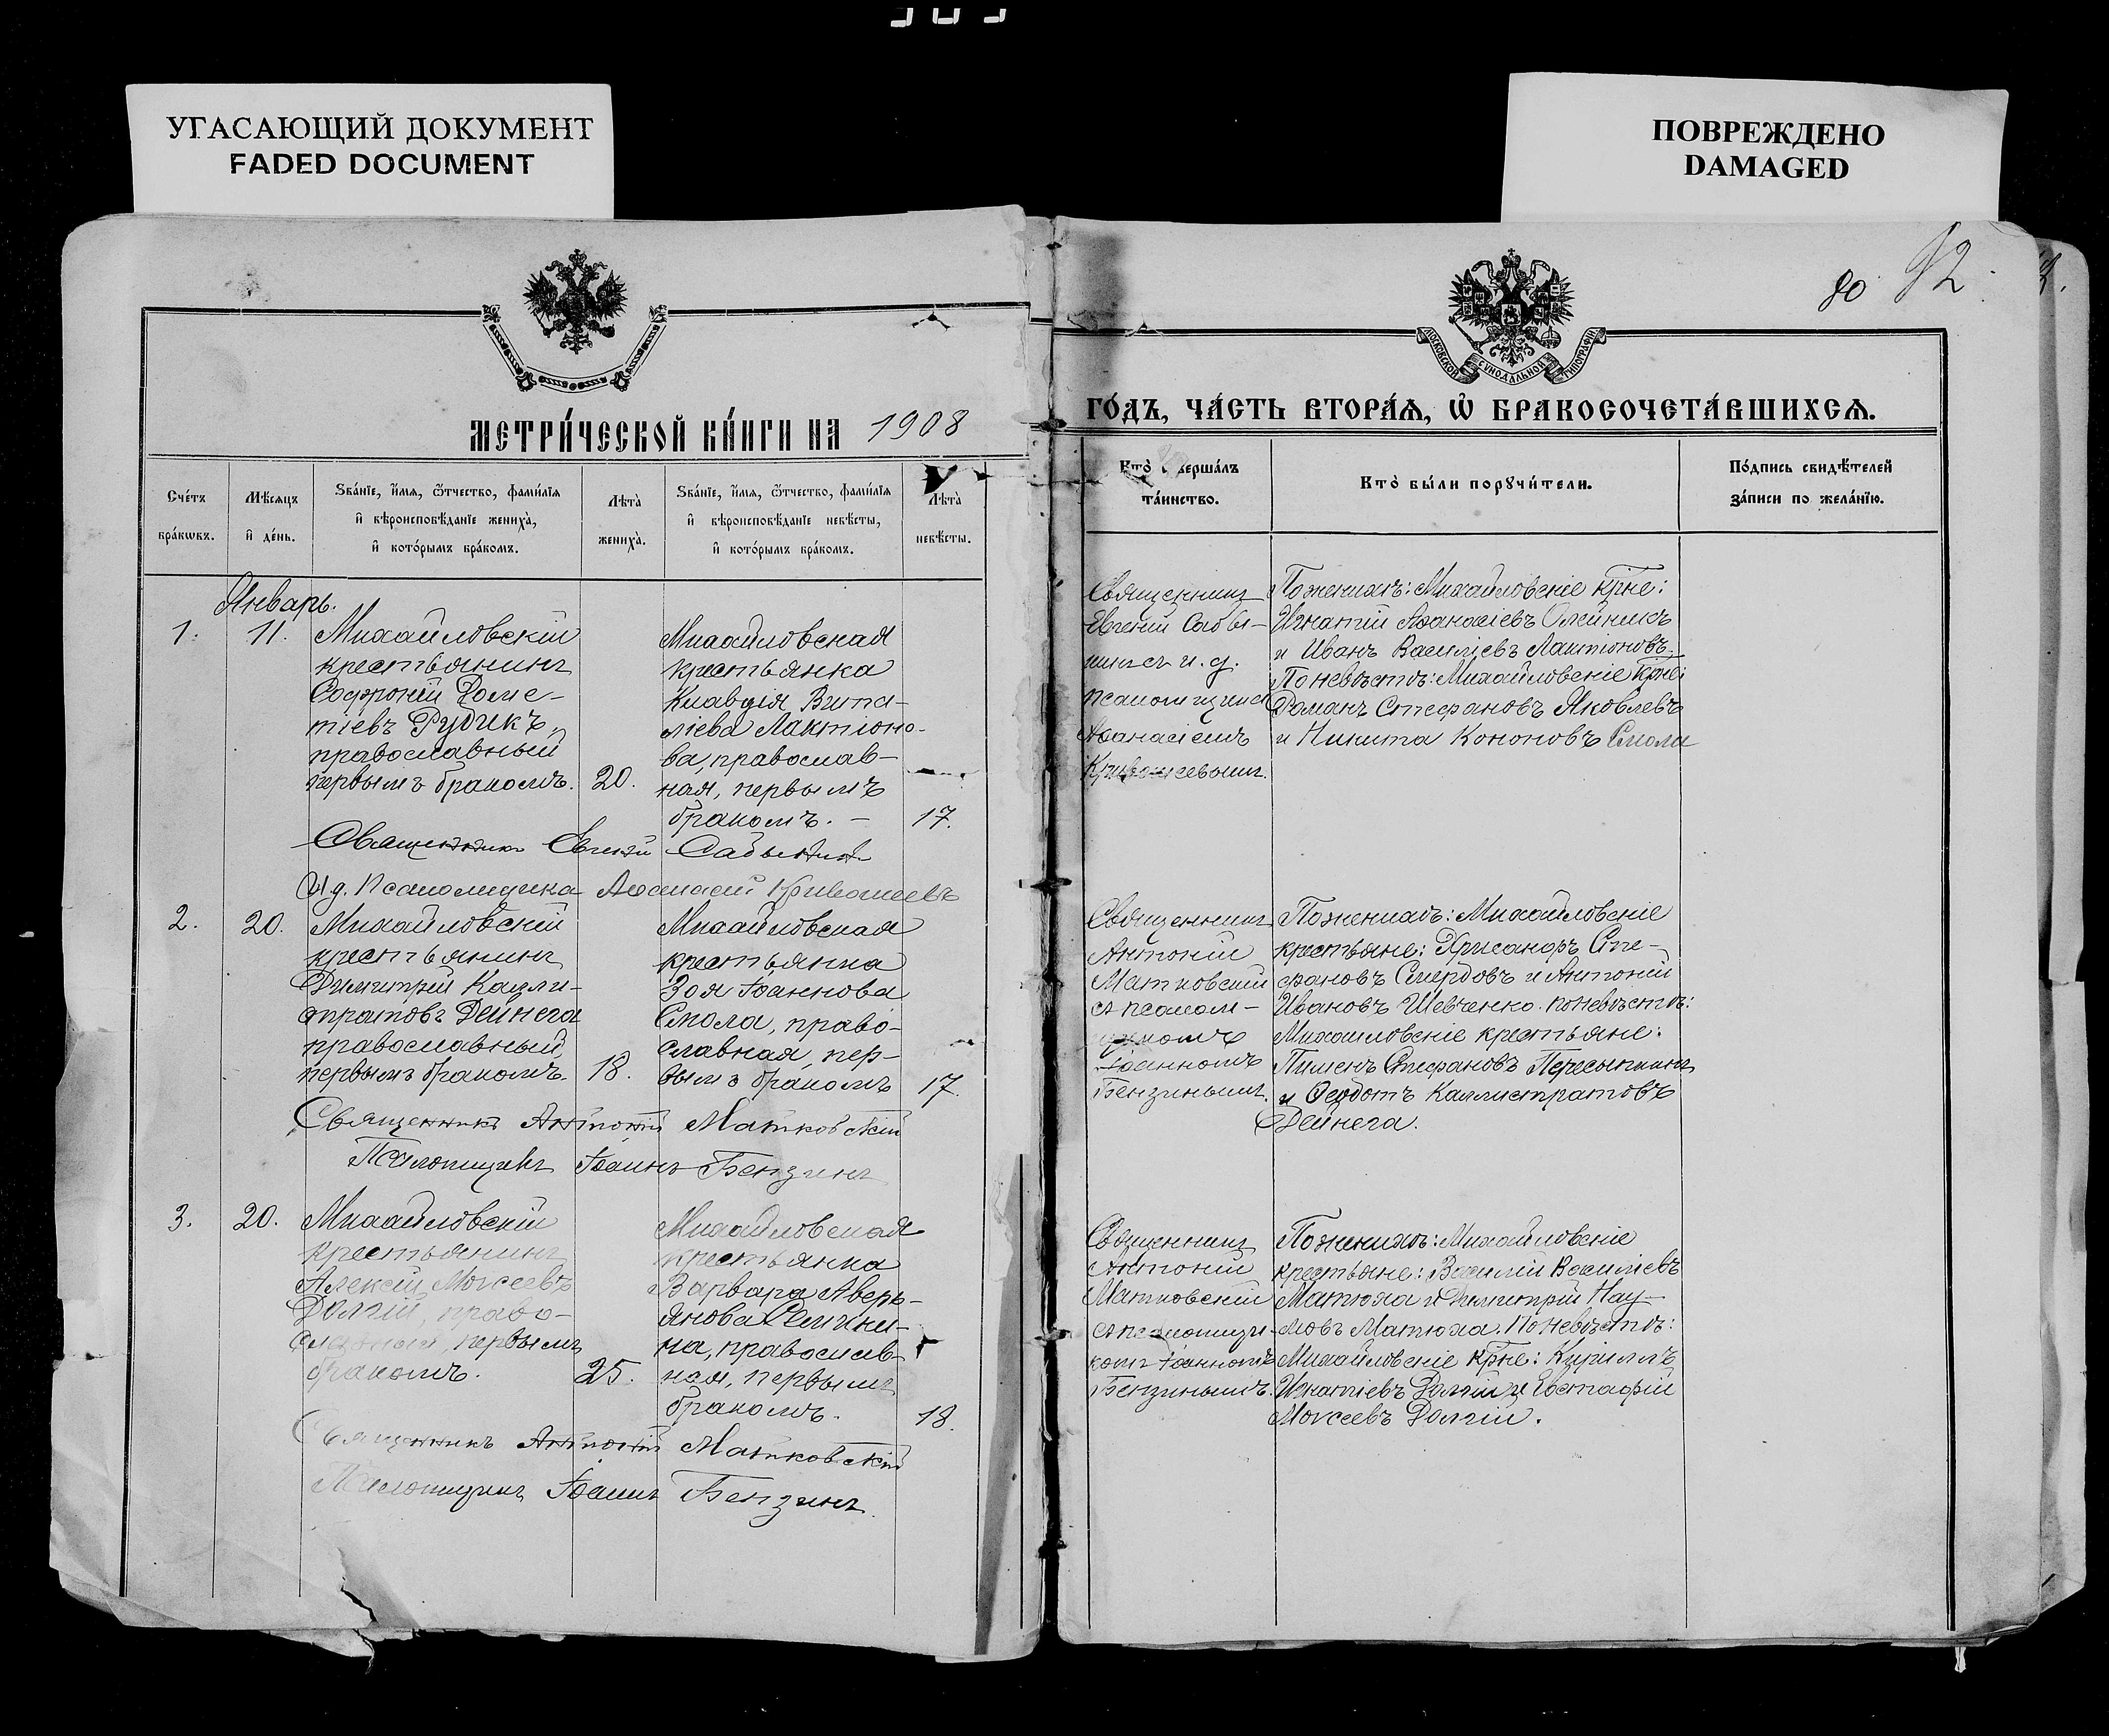 УГАСАЮЩИЙ ДОКУМЕНТ
FADED DOCUMENT
ПОВРЕЖДЕНО
DAMAGED
80 82.
МОСКОВСКОЙ СѴНОДАЛЬНОЙ ТИПОГРАФІИ
МЕТРИ́ЧЕСКОЙ КНИ́ГИ НА 1908
ГО́ДЪ, ЧА́СТЬ ВТОРА́Я, Ѡ҆ БРАКОСОЧЕТА́ВШИХСЯ.
Сче́тъ
бра́кѡвъ.
Мѣ́сяцъ
и҆ де́нь.
Зва́нїе, и҆́мя, ѻ҆́тчество, фами́лїя
и҆ вѣроисповѣ́данїе жениха̀,
и҆ кото́рымъ бра́комъ.
Лѣта̀
жениха̀.
Зва́нїе, и҆́мя, ѻ҆́тчество, фами́лїя
и҆ вѣроисповѣ́данїе невѣ́сты,
и҆ кото́рымъ бра́комъ.
Лѣта̀
невѣ́сты.
Кто̀ совершáлъ
та́инство.
Кто̀ бы́ли порꙋчи́тели.
По́дпись свидѣ́телей
за́писи по жела́нїю.
Январь.
1. 11.
Михайловскій
крестьянинъ
Софроній Доме-
тіевъ Рудикъ,
православный
первымъ бракомъ. 20.
Михайловская
крестьянка
Клавдія Вита-
ліева Лактіоно-
ва, православ-
ная, первымъ
бракомъ. – 17.
Священникъ
Евгеній Сабы-
нинъ с и. д.
псаломщика
Аѳанасіемъ
Кривошеевымъ.
По женихѣ: Михайловскіе кр̃не:
Игнатій Аѳанасіевъ Олейникъ
и Иванъ Василіевъ Лактіоновъ.
По невѣстѣ: Михайловскіе кр̃не:
Романъ Стефановъ Яковлевъ
и Никита Кононовъ Смола
Священникъ Евгеній Сабынинъ
И. д. Псаломщика Аѳанасій Кривошеевъ
2. 20.
Михайловскій
крестьянинъ
Димитрій Калли-
стратовъ Дейнега
православный,
первымъ бракомъ. 18.
Михайловская
крестьянка
Зоя Іоаннова
Смола, право-
славная, пер-
вымъ бракомъ 17.
Священникъ
Антоній
Матковскій
съ псалом-
щикомъ
Іоанномъ
Бензинымъ.
По женихѣ: Михайловскіе
крестьяне: Хрисанфъ Сте-
фановъ Смердовъ и Антоній
Ивановъ Шевченко. по невѣстѣ:
Михайловскіе крестьяне:
Пименъ Стефановъ Пересыпкинъ
и Ѳеодотъ Каллистратовъ
Дейнега.
Священникъ Антоній Матковскій
Псаломщикъ Іоаннъ Бензинъ
3. 20.
Михайловскій
крестьянинъ
Алексій Моисеевъ
Долгій, право-
славный, первымъ
бракомъ. 25.
Михайловская
крестьянка
Варвара Аверь-
янова Семики-
на, православ-
ная, первымъ
бракомъ. 18.
Священникъ
Антоній
Матковскій
съ псаломщи-
комъ Іоанномъ
Бензинымъ.
По женихѣ: Михайловскіе
крестьяне: Василій Василіевъ
Матюха и Димитрій Нау-
мовъ Матюха. По невѣстѣ:
Михайловскіе кр̃не: Кириллъ
Игнатіевъ Долгій и Евстафій
Моисеевъ Долгій.
Священникъ Антоній Матковскій
Псаломщикъ Іоаннъ Бензинъ.